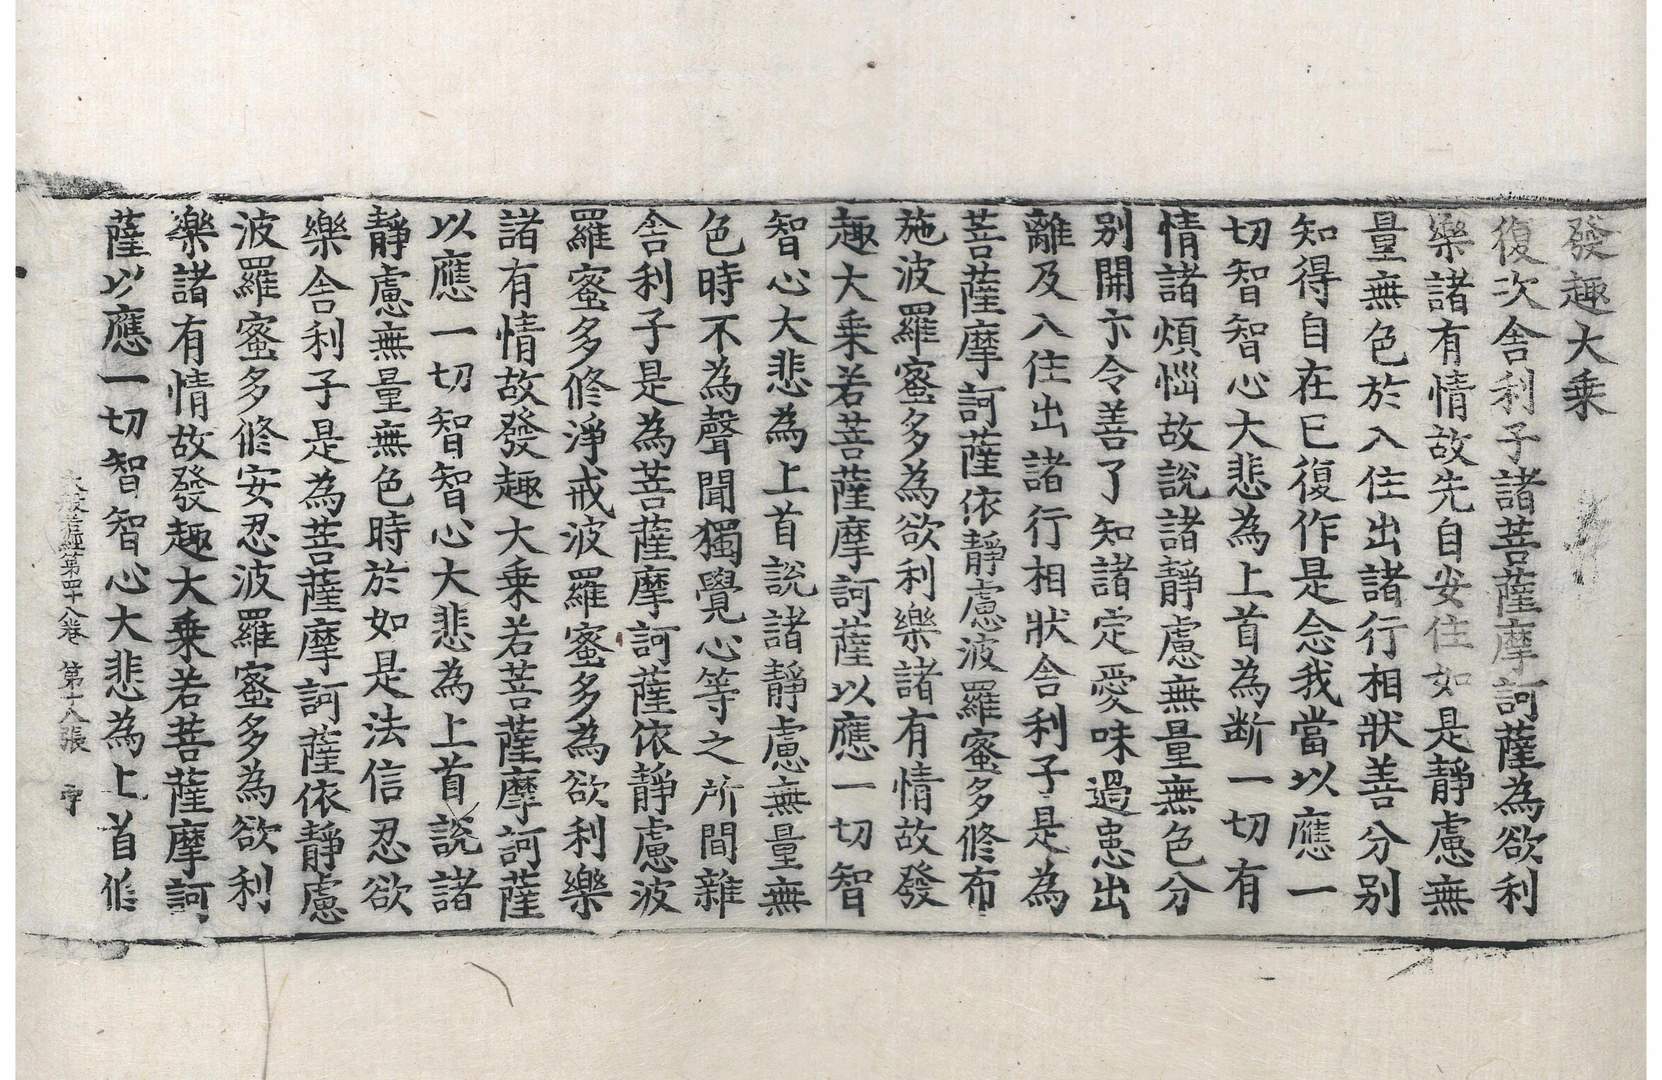 發趣大乘
復次舍利子諸菩薩摩訶薩為欲利
樂諸有情故先自安住如是靜慮無
量無色於入住出諸行相狀善分別
知得自在已復作是念我當以應一
切智智心大悲為上首為断一切有
情諸煩惱故說諸靜慮無量無色分
别開示令善了知諸定愛味過患出
離及入住出諸行相狀舍利子是為
菩薩摩訶薩依靜慮波羅蜜多修布
施波羅蜜多為欲利樂諸有情故發
趣大乘若菩薩摩訶薩以應一切智
智心大悲為上首說諸靜慮無量無
色時不為聲聞獨覺心等之所間雜
舍利子是為菩薩摩訶薩依靜慮波
羅蜜多修淨戒波羅蜜多為欲利樂
諸有情故發趣大乘若菩薩摩訶薩
以應一切智智心大悲為上首說諸
靜慮無量無色時於如是法信忍欲
樂舍利子是為菩薩摩訶薩依靜慮
波羅蜜多修安忍波羅蜜多為欲利
樂諸有情故發趣大乘若菩薩摩訶
薩以應一切智智心大悲為上首修
大般若經第四十八卷 第十八張